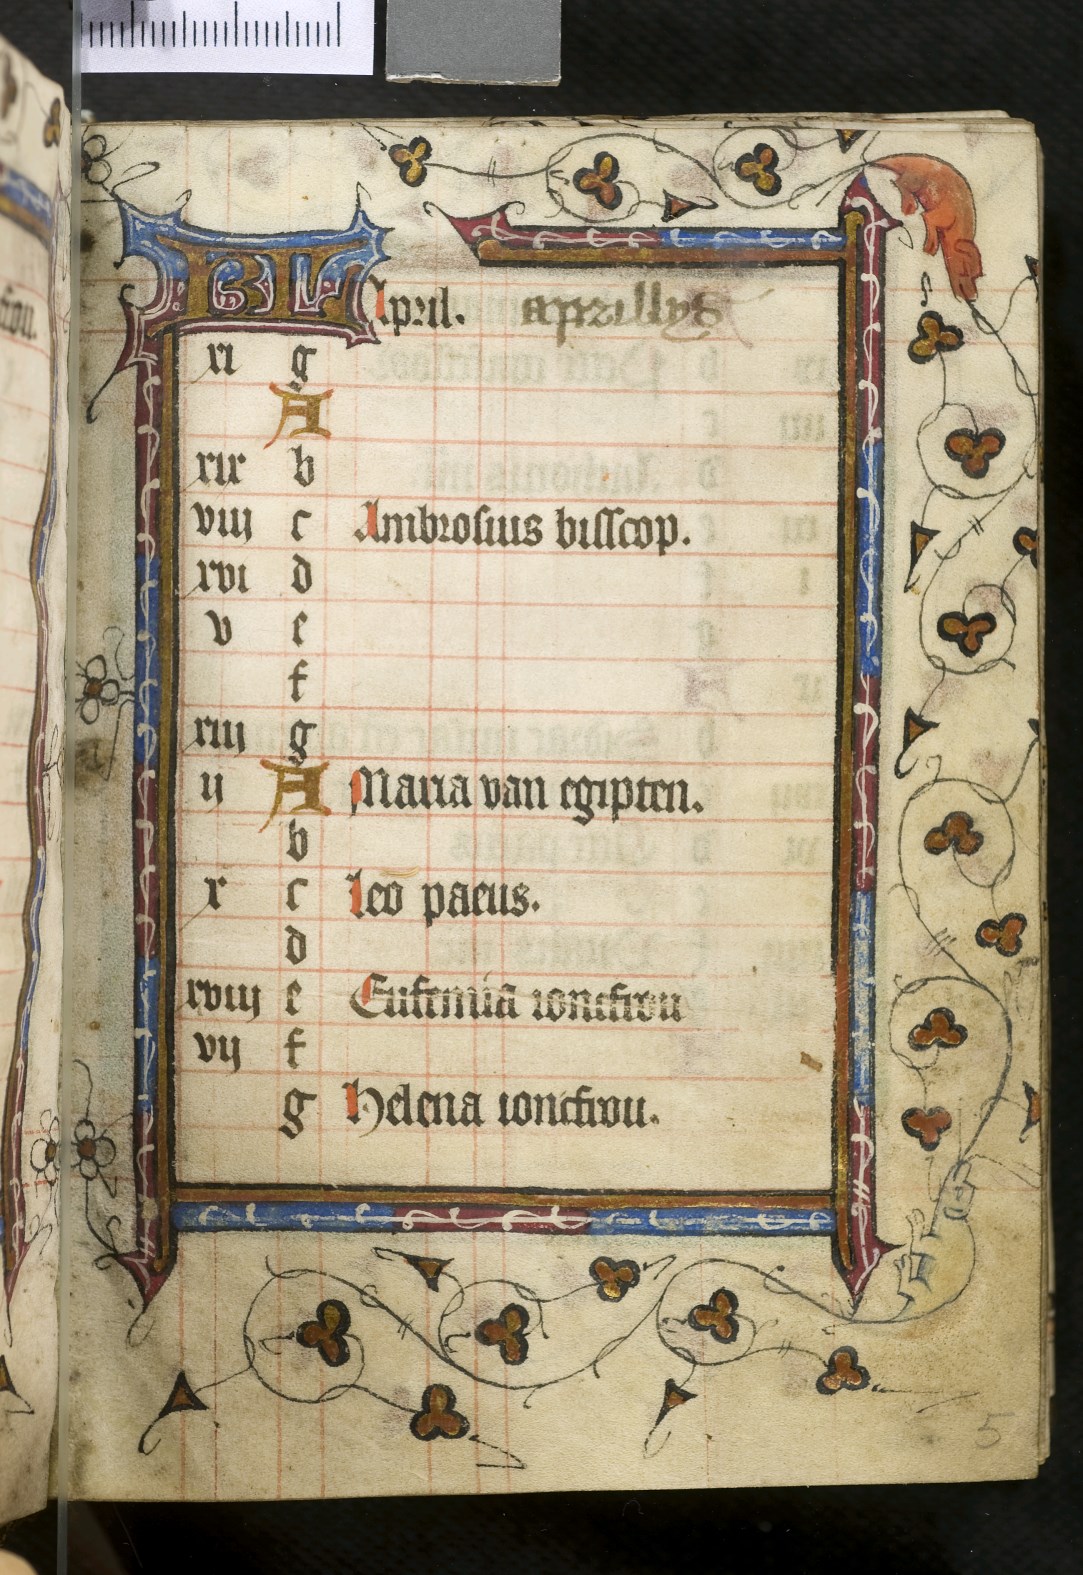 KL April. aprillys
xi g
A
xix b
viij c Ambrosius bisscop.
xvi d
v e
f
xiij g
ij A Maria van egipten.
b
x c Leo paeus.
d
xviij e Eufemia ioncfrou
vij f
g Helena ioncfrou.
5